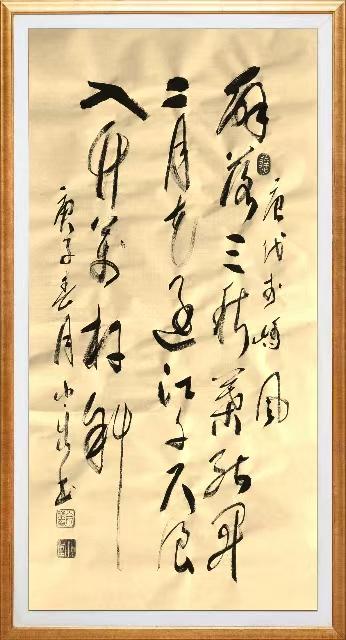 唐代李嶠風
解落三秋葉能開
二月花過江千尺浪
入竹萬竿斜
庚子春月小書